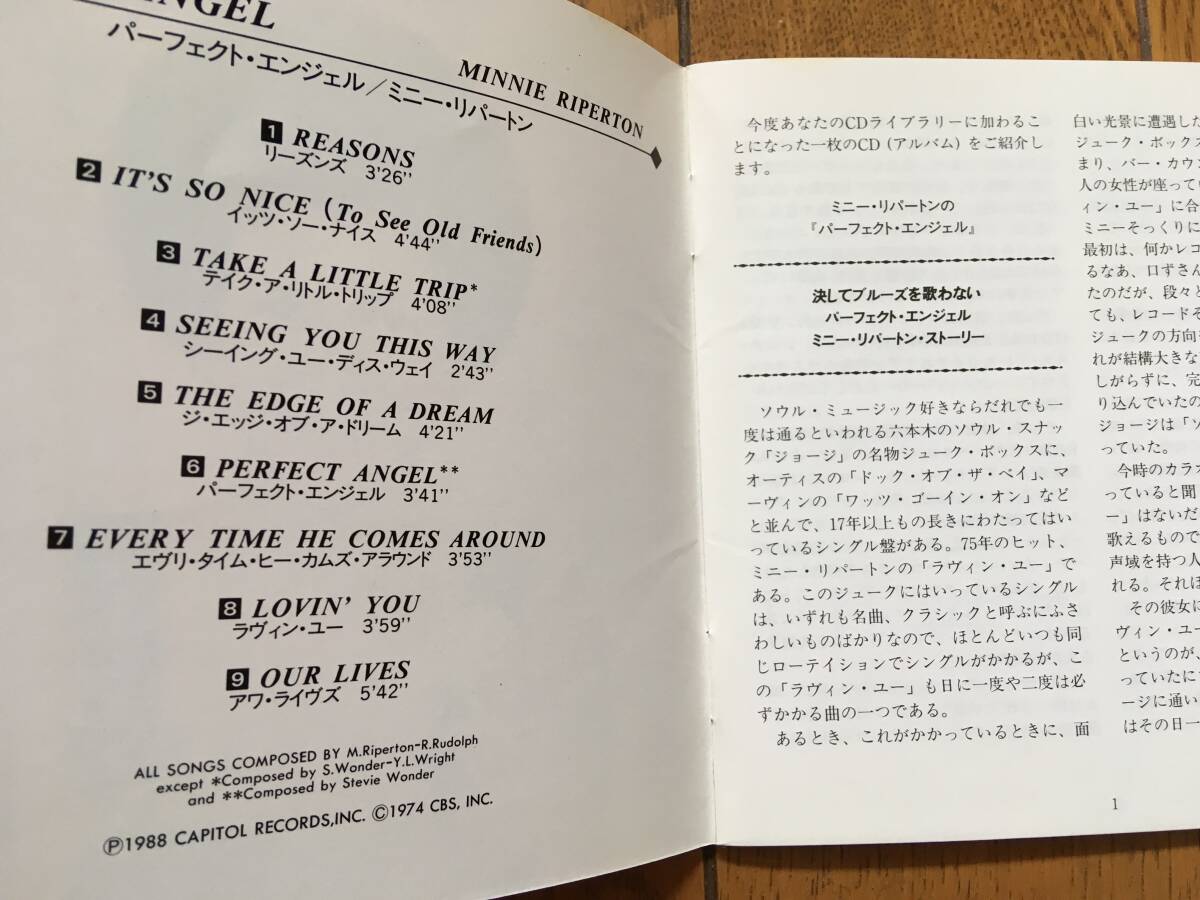 ANGEL
パーフェクト・エンジェル／ミニー・リパートン
MINNIE RIPERTON
1 REASONS
リーズンズ 3'26''
2 IT'S SO NICE (To See Old Friends)
イッツ・ソー・ナイス 4'44''
3 TAKE A LITTLE TRIP*
テイク・ア・リトル・トリップ 4'08''
4 SEEING YOU THIS WAY
シーイング・ユー・ディス・ウェイ 2'43''
5 THE EDGE OF A DREAM
ジ・エッジ・オブ・ア・ドリーム 4'21''
6 PERFECT ANGEL**
パーフェクト・エンジェル 3'41''
7 EVERY TIME HE COMES AROUND
エヴリ・タイム・ヒー・カムズ・アラウンド 3'53''
8 LOVIN' YOU
ラヴィン・ユー 3'59''
9 OUR LIVES
アワ・ライヴズ 5'42''
ALL SONGS COMPOSED BY M.Riperton-R.Rudolph
except *Composed by S.Wonder-Y.L.Wright
and **Composed by Stevie Wonder
Ⓟ1988 CAPITOL RECORDS,INC. ©1974 CBS, INC.
今度あなたのCDライブラリーに加わるこ
とになった一枚のCD (アルバム) をご紹介し
ます。
ミニー・リパートンの
『パーフェクト・エンジェル』
決してブルーズを歌わない
パーフェクト・エンジェル
ミニー・リパートン・ストーリー
ソウル・ミュージック好きならだれでも一
度は通るといわれる六本木のソウル・スナッ
ク「ジョージ」の名物ジューク・ボックスに、
オーティスの「ドック・オブ・ザ・ベイ」、マ
ーヴィンの「ワッツ・ゴーイン・オン」など
と並んで、17年以上もの長きにわたってはい
っているシングル盤がある。75年のヒット、
ミニー・リパートンの「ラヴィン・ユー」で
ある。このジュークにはいっているシングル
は、いずれも名曲、クラシックと呼ぶにふさ
わしいものばかりなので、ほとんどいつも同
じローテイションでシングルがかかるが、こ
の「ラヴィン・ユー」も日に一度や二度は必
ずかかる曲の一つである。
あるとき、これがかかっているときに、面
白い光景に遭遇した
ジューク・ボックス
まり、バー・カウン
人の女性が座ってい
ィン・ユー」に合
ミニーそっくりに
最初は、何かレコ
るなあ、口ずさん
たのだが、段々と
ても、レコードそ
ジュークの方向
れが結構大きな
しがらずに、完
り込んでいたの
ジョージは「ソ
っていた。
今時のカラオ
っていると聞
ー」はないだ
歌えるもので
声域を持つ人
れる。それほ
その彼女に
ヴィン・ユー
というのが、
っていたに
ージに通い
はその日一
1